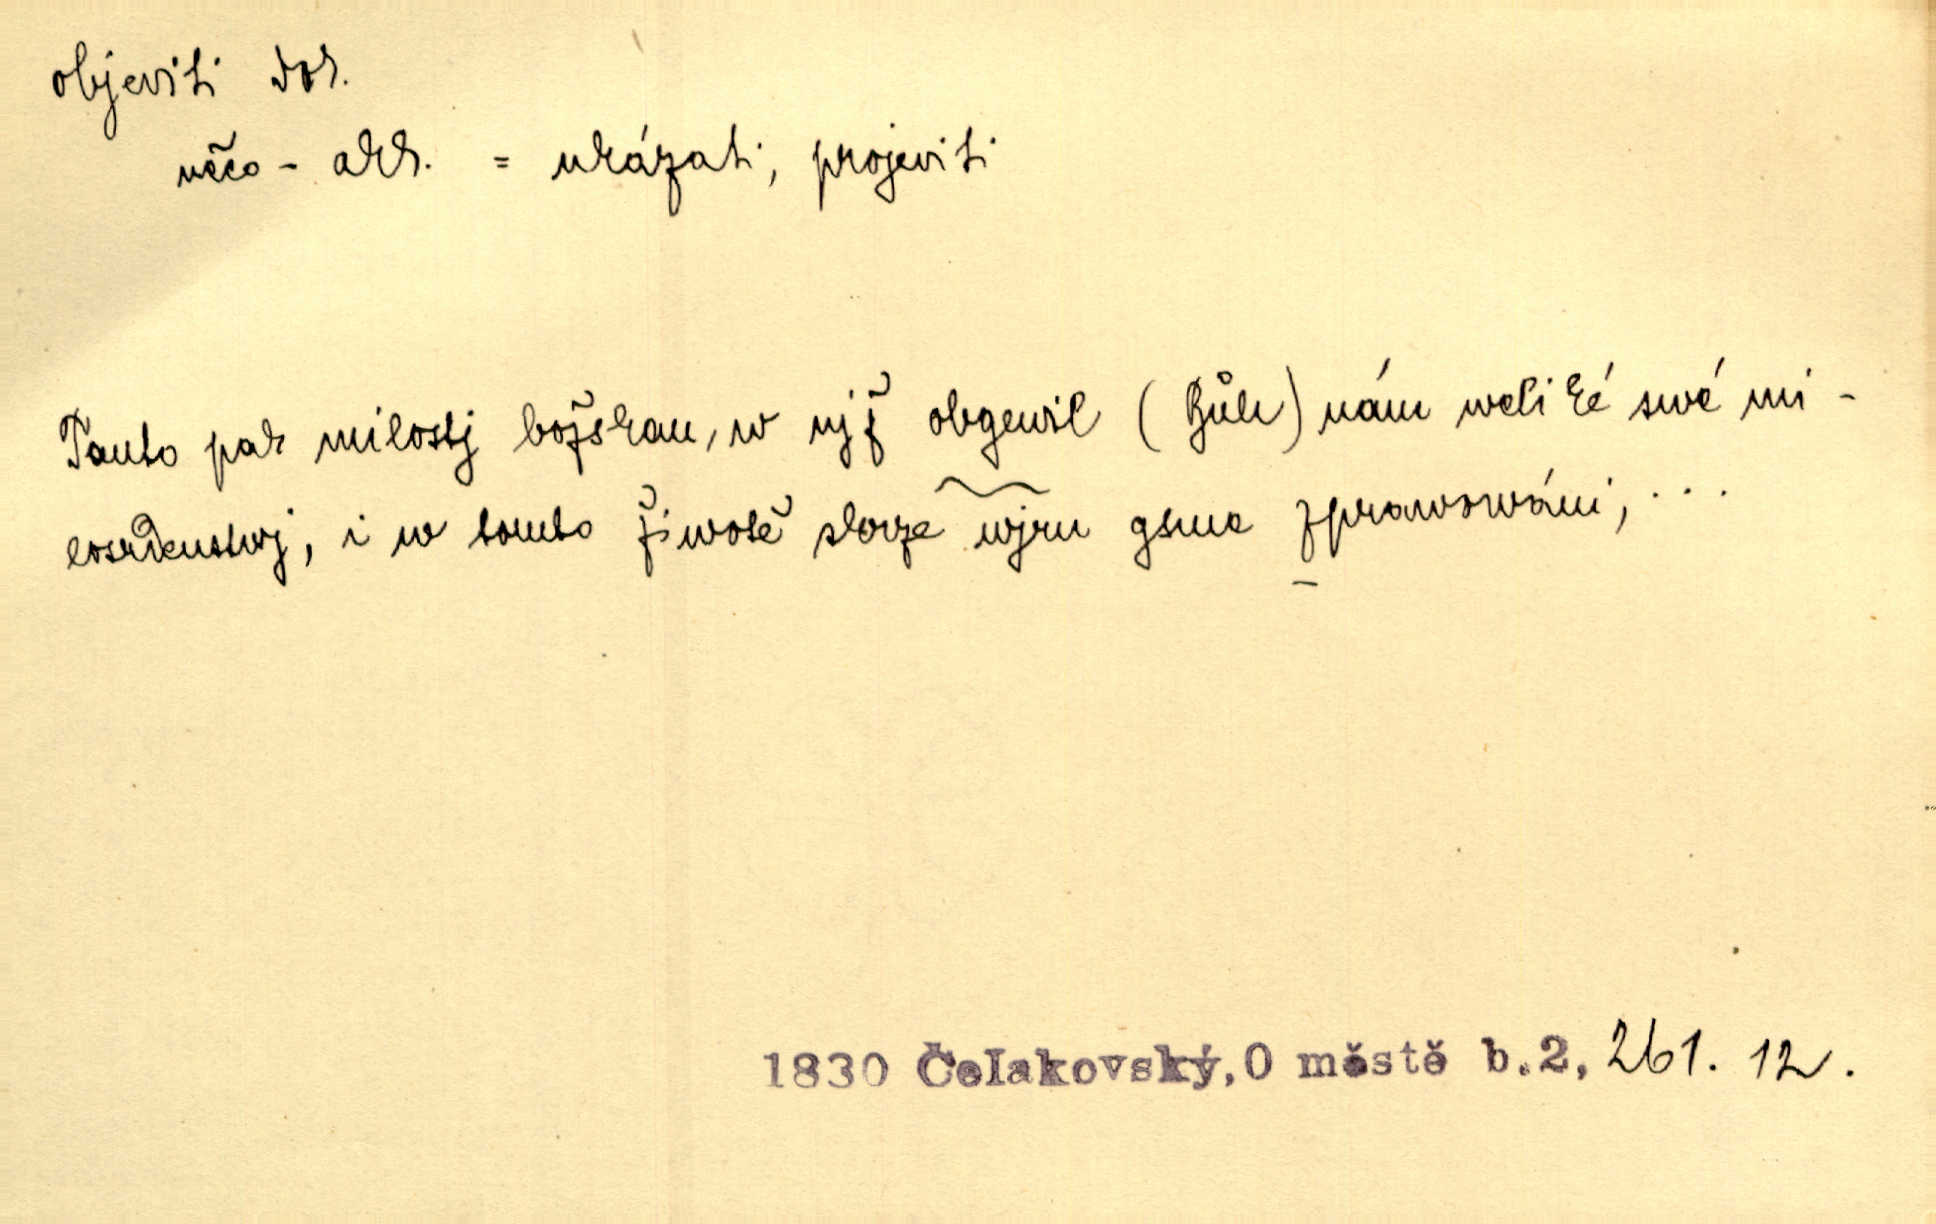 objeviti dok.
něco - akk. = ukázati, projeviti
Tauto pak milostj božskau, w njž obgewil (Bůh) nám weliké swé mi-
losrdenstwj, i w tomto žiwotě skrze wjru gsme zprawowáni, ...
1830 Čelakovský, O městě b.2, 261. 12.